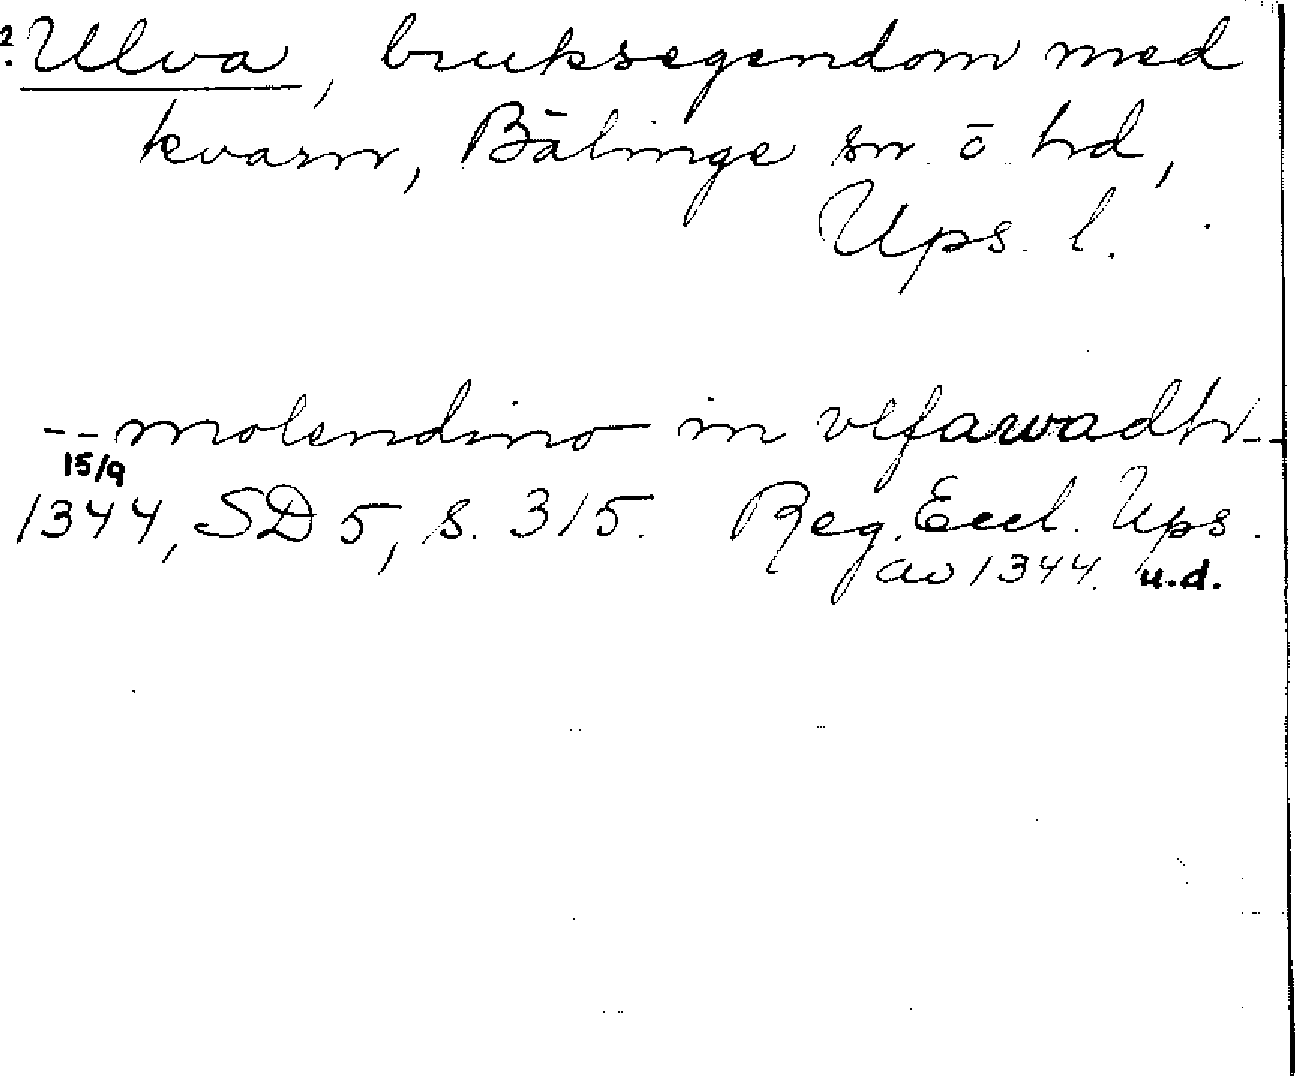 2. Ulva, bruksegendom med
kvarn, Bälinge sn. o. hd,
Ups. l.
-- molendino in vlfawadh --
15/9
1344, SD 5, s. 315. Reg. Eccl. Ups.
av 1344. u.d.